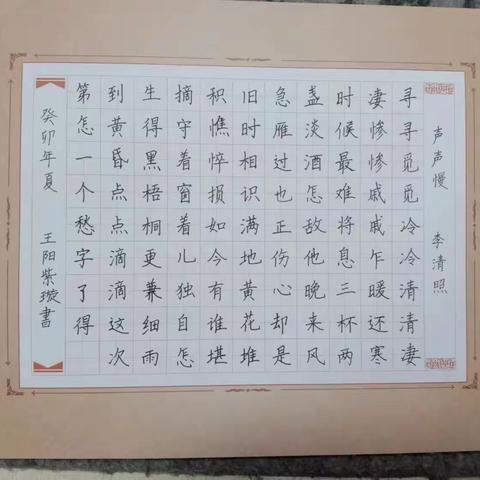 声声慢 李清照
寻寻觅觅冷冷清清凄
凄惨惨戚戚乍暖还寒
时候最难将息三杯两
盏淡酒怎敌他晚来风
急雁过也正伤心却是
旧时相识满地黄花堆
积憔悴损如今有谁堪
摘守着窗着儿独自怎
生得黑梧桐更兼细雨
到黄昏点点滴滴这次
第怎一个愁字了得
癸卯年夏 王阳紫璇書